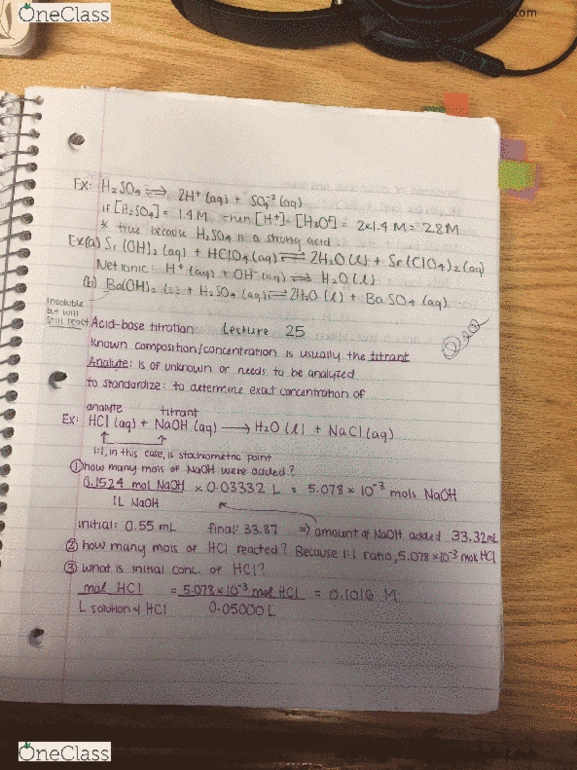 OneClass
.com
Ex: H₂SO₄ ⇌ 2H⁺ (aq) + SO₄⁻² (aq)
if [H₂SO₄] = 1.4 M, then [H⁺] = [H₃O⁺] = 2x1.4 M = 2.8 M
* true because H₂SO₄ is a strong acid
Ex(a) Sr(OH)₂ (aq) + HClO₄ (aq) ⇌ 2H₂O (l) + Sr(ClO₄)₂ (aq)
Net ionic: H⁺ (aq) + OH⁻ (aq) ⇌ H₂O (l)
(b) Ba(OH)₂ (s) + H₂SO₄ (aq) ⇌ 2H₂O (l) + BaSO₄ (aq)
insoluble
but will
still react
Acid-base titration Lecture 25
known composition/concentration is usually the titrant
Analyte: is of unknown or needs to be analyzed
to standardize: to determine exact concentration of
analyte titrant
Ex: HCl (aq) + NaOH (aq) → H₂O (l) + NaCl (aq)
1:1, in this case, is stochiometric point
① how many mols of NaOH were added?
0.1524 mol NaOH x 0.03332 L = 5.078 x 10⁻³ mols NaOH
1L NaOH
initial: 0.55 mL final: 33.87 ⇒ amount of NaOH added 33.32mL
② how many mols of HCl reacted? Because 1:1 ratio, 5.078 x10⁻³ mol HCl
③ what is initial conc. of HCl?
mol HCl = 5.078 x 10⁻³ mol HCl = 0.1016 M
L solution of HCl 0.05000 L
OneClass